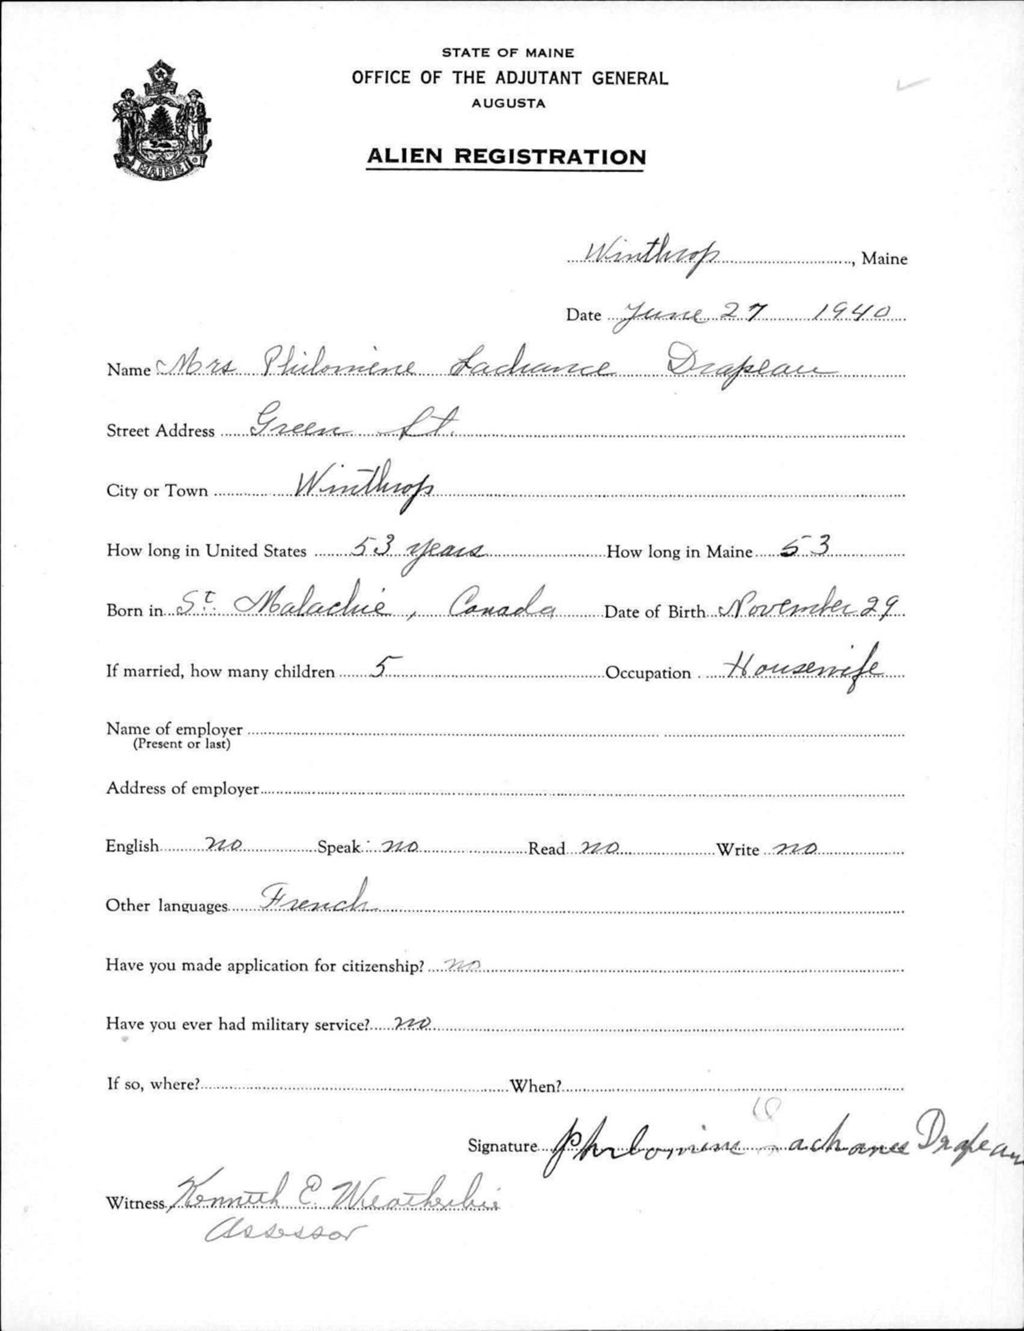 STATE OF MAINE
OFFICE OF THE ADJUTANT GENERAL
AUGUSTA
ALIEN REGISTRATION
MAINE
Winthrop, Maine
Date June 27 1940
Name Mrs Philomene Lachance Drapeau
Street Address Green St.
City or Town Winthrop
How long in United States 53 years How long in Maine 53
Born in St. Malachie, Canada Date of Birth November 29
If married, how many children 5 Occupation Housewife
Name of employer
(Present or last)
Address of employer
English no Speak no Read no Write no
Other languages French
Have you made application for citizenship? no
Have you ever had military service? no
If so, where? When?
Signature Philomine Lachance Drapeau
Witness Kenneth E. Weatherbie
Assessor